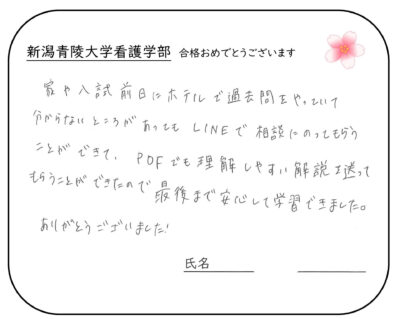 新潟青陵大学看護学部 合格おめでとうございます
家や入試前日にホテルで過去問をやっていて
分からないところがあってもLINEで相談にのってもらう
ことができて、PDFでも理解しやすい解説を送って
もらうことができたので最後まで安心して学習できました。
ありがとうございました!
氏名